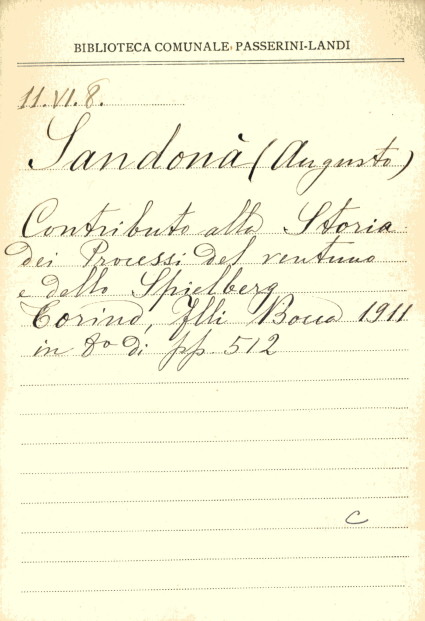 BIBLIOTECA COMUNALE PASSERINI-LANDI
11.VI.8.
Sandonà (Augusto)
Contributo alla Storia
dei Processi del ventuno
e dello Spielberg
Torino, Flli Bocca 1911
in 8º di pp 512
C